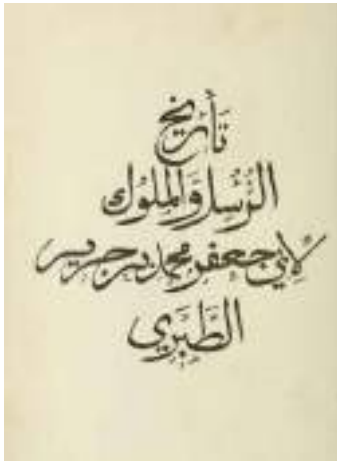 تَأريخ
الرُّسُل وَالمُلُوك
لأبي جعفر محمد بن جرير
الطَّبَرِي